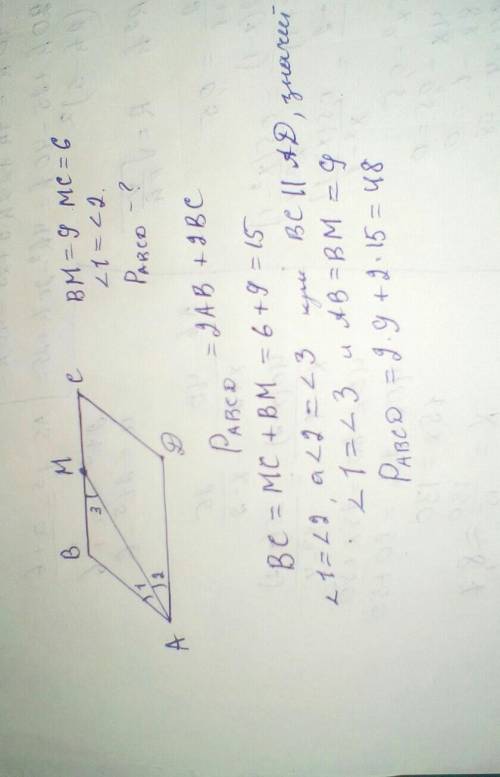 B M C
3
1
2
A D
BM = 9 MC = 6
∠1 = ∠2.
P ABCD - ?
P ABCD = 2AB + 2BC
BC = MC + BM = 6 + 9 = 15
∠1 = ∠2, а ∠2 = ∠3 при BC || AD, значит
∠1 = ∠3 и AB = BM = 9
P ABCD = 2·9 + 2·15 = 48